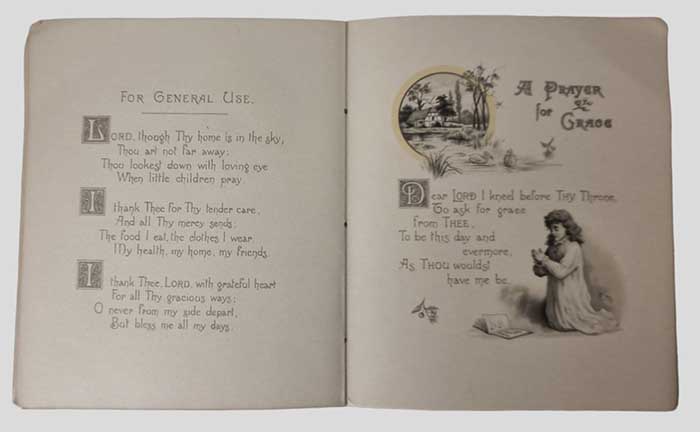 FOR GENERAL USE.
LORD, though Thy home is in the sky,
Thou art not far away;
Thou lookest down with loving eye
When little children pray.
I thank Thee for Thy tender care,
And all Thy mercy sends;
The food I eat, the clothes I wear
My health, my home, my friends.
I thank Thee, LORD, with grateful heart
For all Thy gracious ways;
O never from my side depart,
But bless me all my days.
A PRAYER
for GRACE
Dear LORD I kneel before THY Throne,
To ask for grace
from THEE,
To be this day and
evermore,
As THOU wouldst
have me be.